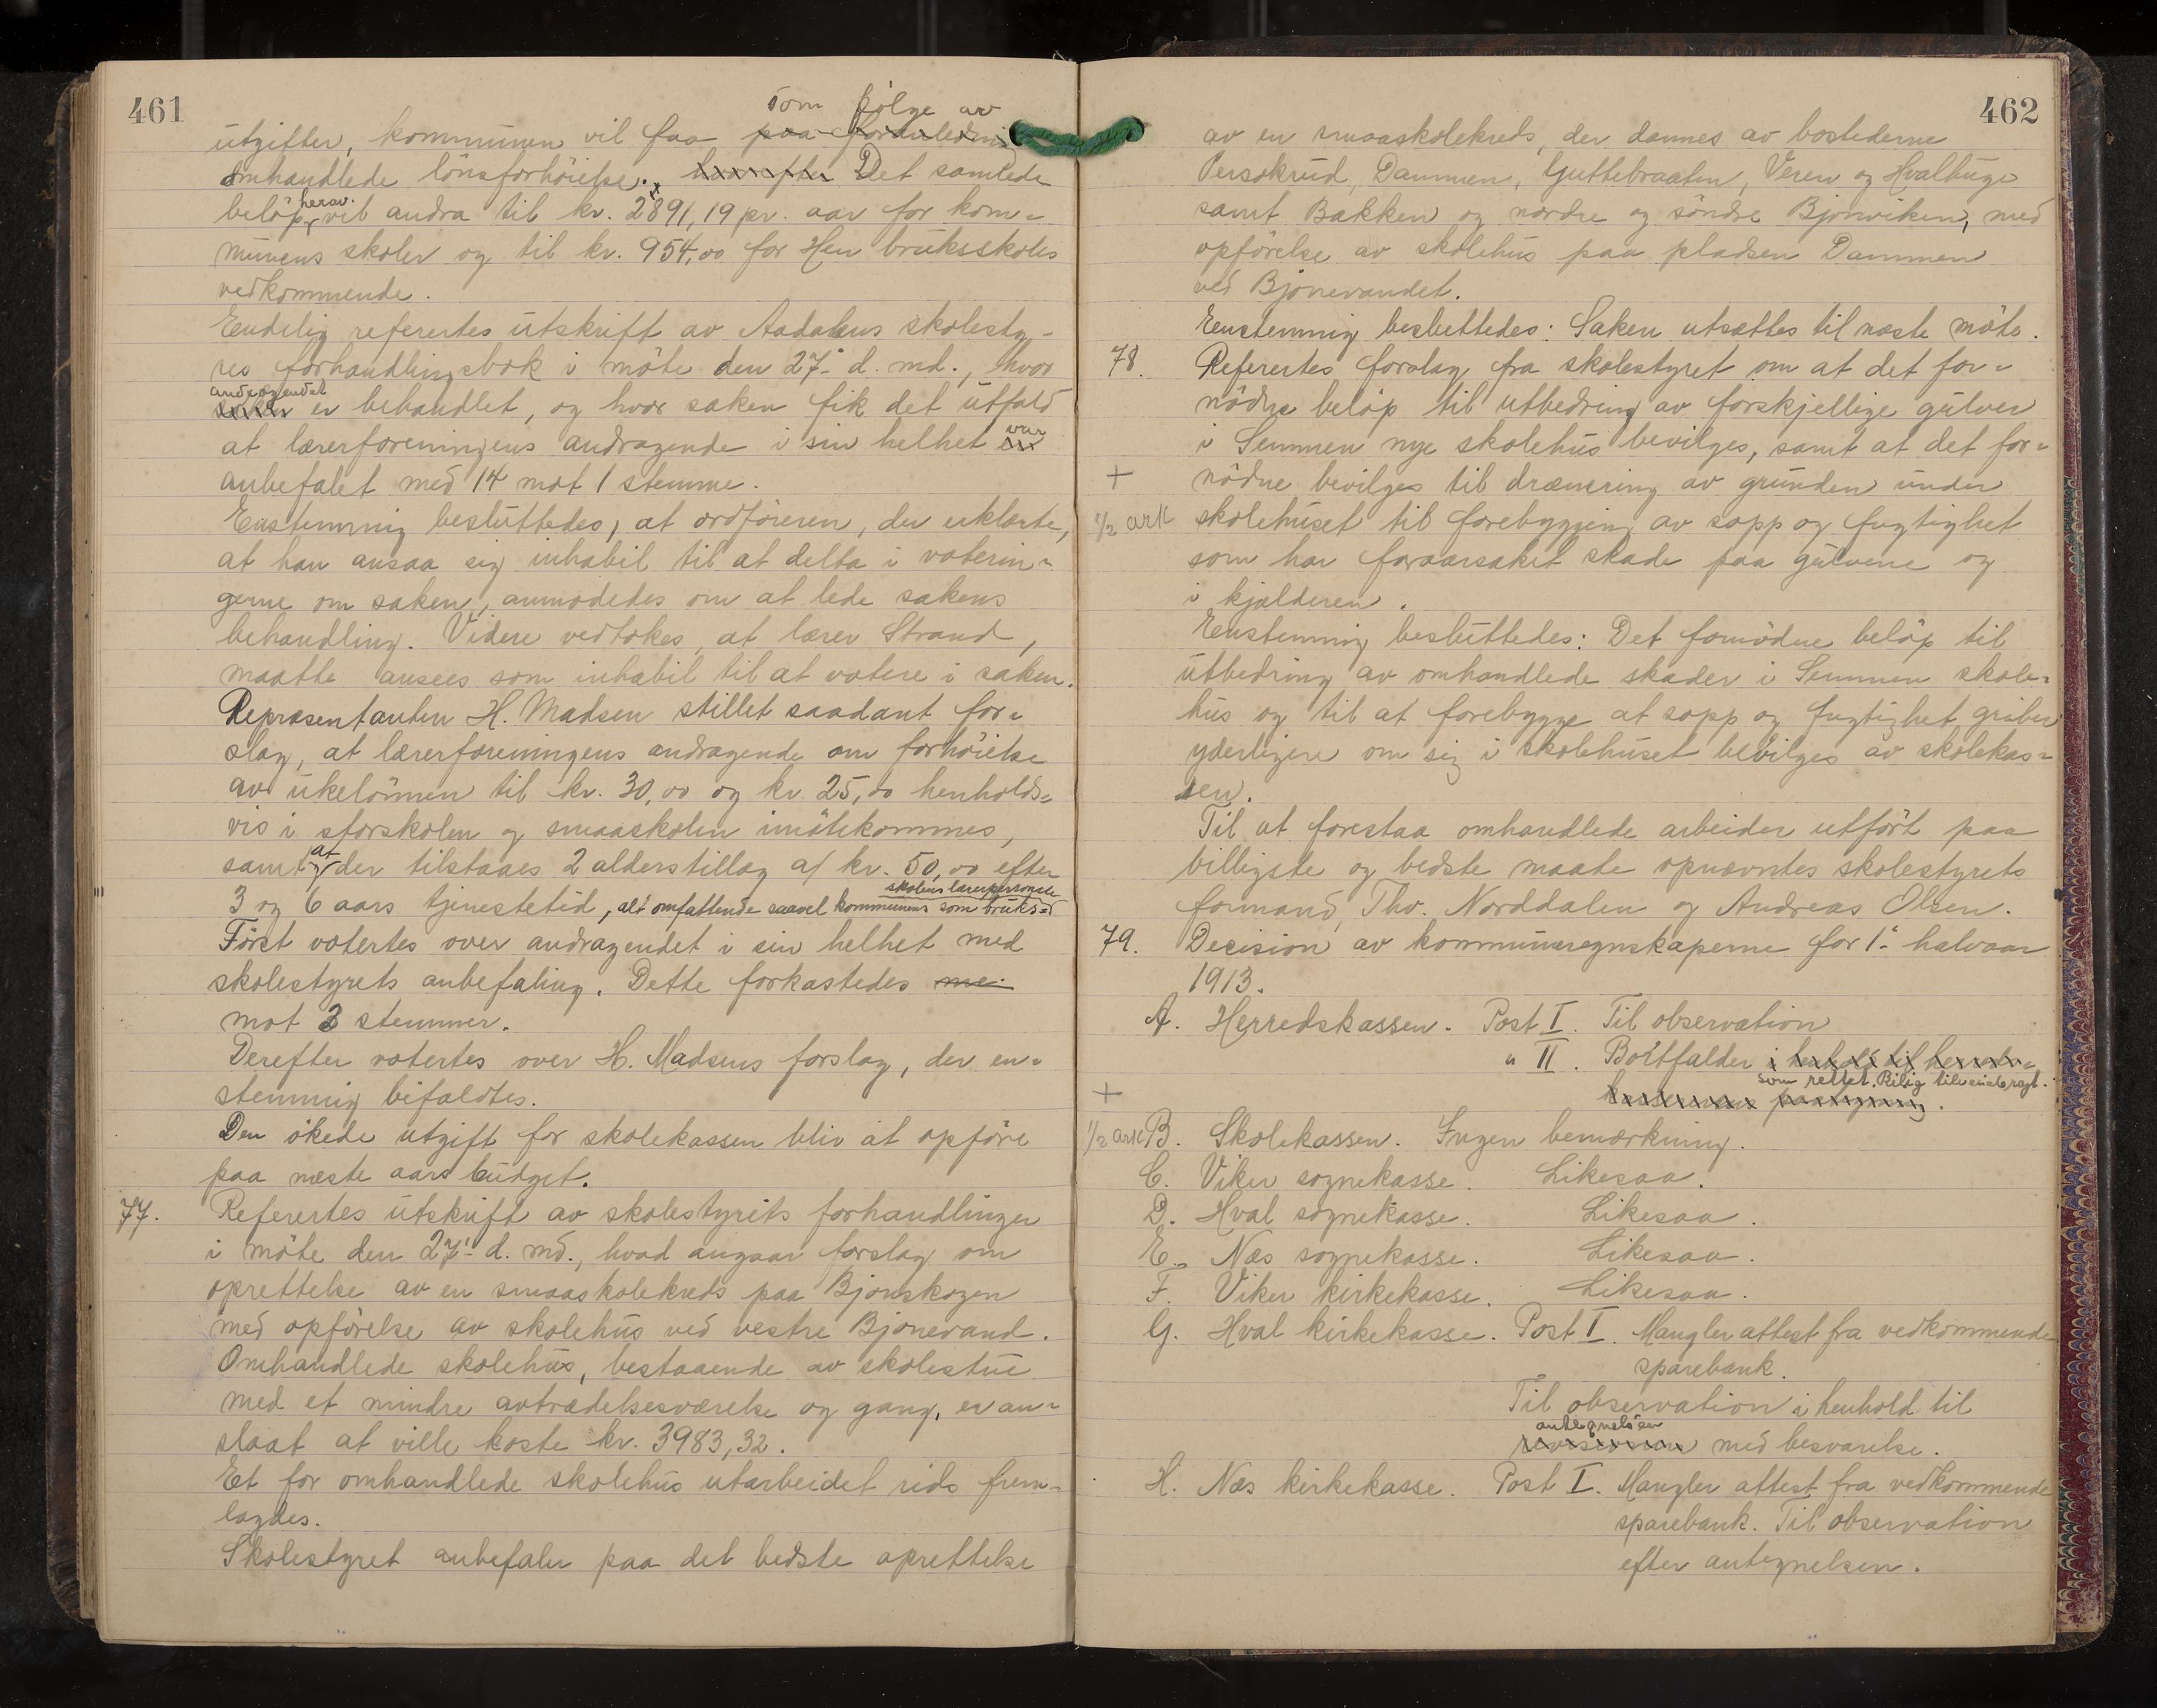 461
som følge av
utgifter, kommunen vil faa paa foranledning
omhandlede lönsforhöielse. herefter Det samlede
belöp herav vil andra til kr. 2891,19 pr. aar for kom-
munens skoler og til kr. 954,00 for Hen bruksskoles
vedkommende.
Eendelig refertes utskrift av Aadalens skolesty-
res forhandlingsbok i möte den 27de d. md., hvor
andragendet
saken er behandlet, og hvor saken fik det utfald
at lærerforeningens andragende i sin helhet var
anbefalet med 14 mot 1 stemme.
Enstemmig besluttedes, at ordföreren, der erklærte,
at han ansaa sig inhabil til at delta i voterin-
gerne om saken, anmodedes om at lede sakens
behandling. Videre vedtokes, at lærer Strand,
maatte ansees som inhabil til at votere i saken.
Repræsentanten H. Madsen stillet saadant for-
slag, at lærerforeningens andragende om forhöielse
av ukelönnen til kr. 30,00 og kr. 25,00 henholds-
vis i storskolen og smaaskolen imötekommes,
samt at der tilstaaes 2 alderstillæg a/ kr. 50,00 efter
skolens lærerpersonale
3 og 6 aars tjenestetid, alt omfattende saavel kommunens som bruks-
Först votertes over andragendet i sin helhet med
skolestyrets anbefaling. Dette forkastedes me
mot 3 stemmer.
Derefter votertes over H. Madsens forslag, der en-
stemmig bifaldtes.
Den ökede utgift for skolekassen bliv at opföre
paa næste aars budget.
77. Referertes utskrift av skolestyrets forhandlinger
i möte den 27de d. md., hvad angaar forslag om
oprettelse av en smaaskolekreds paa Bjoneskogen
med opförelse av skolehus ved vestre Bjonevand.
Omhandlede skolehus, bestaaende av skolestue
med et mindre avtrædelsesværelse og gang, er an-
slaat at ville koste kr. 3983,32.
Et for omhandlede skolehus utarbeidet rids frem-
lagdes.
Skolestyret anbefaler paa det bedste oprettelse
462
av en smaaskolekreds, der dannes av bostederne
Persokrud, Dammen, Guttebraaten, Veren og Hvalhuge
samt Bakken og nordre og söndre Bjonviken, med
opförelse av skolehus paa pladsen Dammen
ved Bjonevandet.
Eenstemmig besluttedes: Saken utsættes til næste möte.
78. Referertes forslag fra skolestyret om at det for-
nödne belöp til utbedring av forskjellige gulver
i Semmen nye skolehus bevilges, samt at det for-
+ nödne bevilges til drænering av grunden under
1/2 ark skolehuset til forebygging av sopp og fugtighet
som har foraarsaket skade paa gulvene og
i kjælderen.
Eenstemmig besluttedes: Det fornödne belöp til
utbedring av omhandlede skader i Semmen skole-
hus og til at forebygge at sopp og fugtighet griber
yderligere om sig i skolehuset bevilges av skolekas-
sen.
Til at forestaa omhandlede arbeider utfört paa
billigste og bedste maate opnævntes skolestyrets
formand, Thv. Norddalen og Andreas Olsen.
79. Decision av kommuneregnskaperne for 1ste halvaar
1913.
A. Herredskassen. Post I. Til observation
" II. Bortfalder i henhold til
som rettet. Bilag tilveiebragt.
+
1/2 ark B. Skolekassen. Ingen bemærkning.
C. Viker sognekasse. Likesaa.
D. Hval sognekasse. Likesaa.
E. Næs sognekasse. Likesaa.
F. Viker kirkekasse. Likesaa.
G. Hval kirkekasse. Post I. Mangler attest fra vedkommende
sparebank.
Til observation i henhold til
antegnelsen
med besvarelse.
H. Næs kirkekasse. Post I. Mangler attest fra vedkommende
sparebank. Til observation
efter antegnelsen.